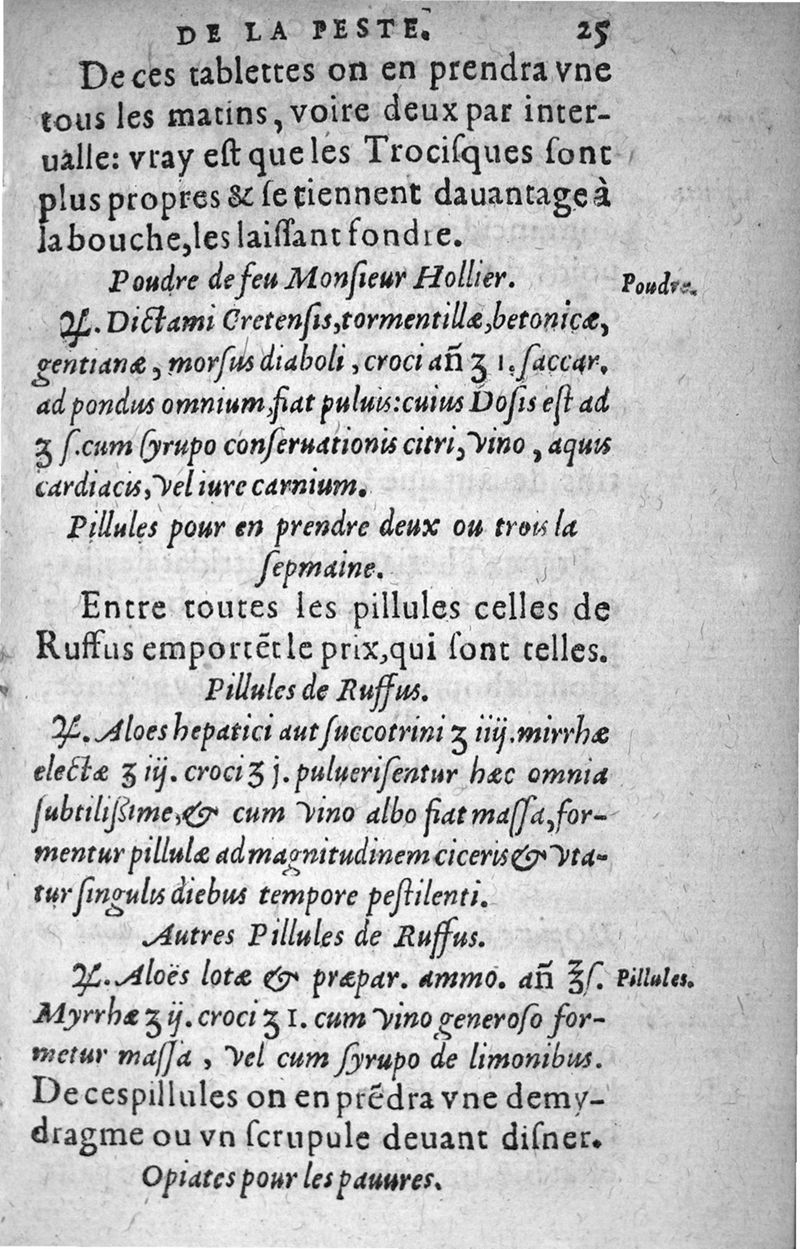 DE LA PESTE. 25
De ces tablettes on en prendra vne
tous les matins, voire deux par inter-
ualle: vray eſt que les Trociſques ſont
plus propres & ſe tiennent dauantage à
la bouche, les laiſſant fondre.
Poudre de feu Monſieur Hollier. Poudre.
℞. Dictami Cretenſis, tormentillæ, betonicæ,
gentianæ, morſus diaboli, croci añ ʒ 1. ſaccar.
ad pondus omnium, fiat puluis: cuius Doſis eſt ad
ʒ ſ. cum ſyrupo conſeruationis citri, vino, aquis
cardiacis, vel iure carnium.
Pillules pour en prendre deux ou trois la
ſepmaine.
Entre toutes les pillules celles de
Ruffus emportẽt le prix, qui ſont telles.
Pillules de Ruffus.
℞. Aloes hepatici aut ſuccotrini ʒ iiij. mirrhæ
electæ ʒ iij. croci ʒ j. pulueriſentur hæc omnia
ſubtilißime, & cum vino albo fiat maſſa, for-
mentur pillulæ ad magnitudinem ciceris & vta-
tur ſingulis diebus tempore peſtilenti.
Autres Pillules de Ruffus.
℞. Aloës lotæ & præpar. ammo. añ ℥ſ. Pillules.
Myrrhæ ʒ ij. croci ʒ 1. cum vino generoſo for-
metur maſſa, vel cum ſyrupo de limonibus.
De ces pillules on en prẽdra vne demy-
dragme ou vn ſcrupule deuant diſner.
Opiates pour les pauures.